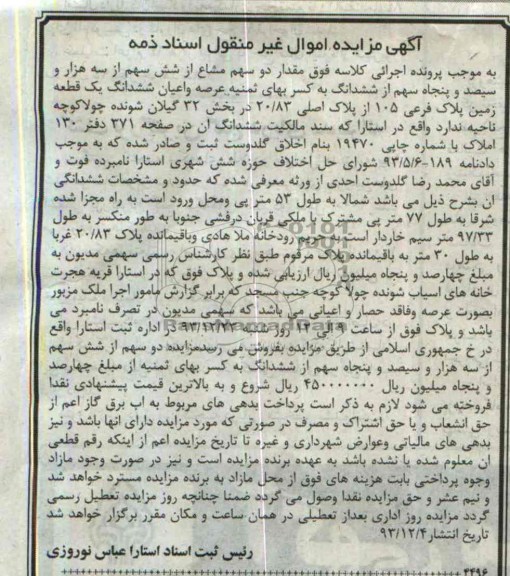 آگهی مزایده اموال غیر منقول اسناد ذمه
به موجب پرونده اجرائی کلاسه فوق مقدار دو سهم مشاع از شش سهم از سه هزار و
سیصد و پنجاه سهم از ششدانگ به کسر بهای ثمنیه عرصه واعیان ششدانگ یک قطعه
زمین پلاک فرعی ۱۰۵ از پلاک اصلی ۲۰/۸۳ در بخش ۳۲ گیلان شونده چولاکوچه
ناحیه ندارد واقع در استارا که سند مالکیت ششدانگ ان در صفحه ۳۷۱ دفتر ۱۳۰
املاک با شماره چاپی ۱۹۴۷۰ بنام اخلاق گلدوست ثبت و صادر شده که به موجب
دادنامه ۱۸۹-۹۳/۵/۶ شورای حل اختلاف حوزه شش شهری استارا نامبرده فوت و
آقای محمد رضا گلدوست احدی از ورثه معرفی شده که حدود و مشخصات ششدانگی
ان بشرح ذیل می باشد شمالا به طول ۵۳ متر پی ومحل ورود است به راه مجزا شده
شرقا به طول ۷۷ متر پی مشترک با ملکی قربان درفشی جنوبا به طور منکسر به طول
۹۷/۳۳ متر سیم خاردار است به حریم رودخانه ملا هادی وباقیمانده پلاک ۲۰/۸۳ غربا
به طول ۳۰ متر به باقیمانده پلاک مرقوم طبق نظر کارشناس رسمی سهمی مدیون به
مبلغ چهارصد و پنجاه میلیون ریال ارزیابی شده و پلاک فوق که در استارا قریه هجرت
خانه های اسیاب شونده چولا کوچه جنب مسجد که برابر گزارش مامور اجرا ملک مزبور
بصورت عرصه وفاقد حصار و اعیانی می باشد که سهمی مدیون در تصرف نامبرد می
باشد و پلاک فوق از ساعت ۹ الی ۱۲ روز ۹۳/۱۲/۲۳ در اداره ثبت استارا واقع
در خ جمهوری اسلامی از طریق مزایده بفروش می رسدمزایده دو سهم از شش سهم
از سه هزار و سیصد و پنجاه سهم از ششدانگ به کسر بهای ثمنیه از مبلغ چهارصد
و پنجاه میلیون ریال ۴۵۰۰۰۰۰۰۰ ریال شروع و به بالاترین قیمت پیشنهادی نقدا
فروخته می شود لازم به ذکر است پرداخت بدهی های مربوط به اب برق گاز اعم از
حق انشعاب و یا حق اشتراک و مصرف در صورتی که مورد مزایده دارای انها باشد و نیز
بدهی های مالیاتی وعوارض شهرداری و غیره تا تاریخ مزایده اعم از اینکه رقم قطعی
ان معلوم شده یا نشده باشد به عهده برنده مزایده است و نیز در صورت وجود مازاد
وجوه پرداختی بابت هزینه های فوق از محل مازاد به برنده مزایده مسترد خواهد شد
و نیم عشر و حق مزایده نقدا وصول می گردد ضمنا چنانچه روز مزایده تعطیل رسمی
گردد مزایده روز اداری بعداز تعطیلی در همان ساعت و مکان مقرر برگزار خواهد شد
تاریخ انتشار ۹۳/۱۲/۴
رئیس ثبت اسناد استارا عباس نوروزی
۴۴۹۶